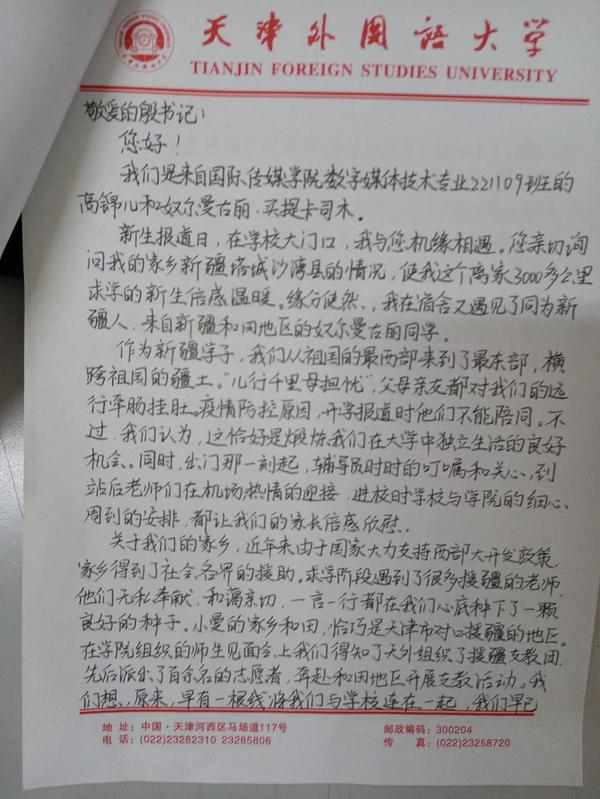 天津外国语大学
TIANJIN FOREIGN STUDIES UNIVERSITY
敬爱的殷书记:
您好!
我们是来自国际传媒学院数字媒体技术专业221109班的
高锦儿和奴尔曼古丽·买提卡司木。
新生报道日,在学校大门口,我与您机缘相遇。您亲切询
问我的家乡新疆塔城沙湾县的情况,使我这个离家3000多公里
求学的新生倍感温暖。缘分使然,我在宿舍又遇见了同为新
疆人、来自新疆和田地区的奴尔曼古丽同学。
作为新疆学子,我们从祖国的最西部来到了最东部,横
跨祖国的疆土。“儿行千里母担忧”,父母亲友都对我们的远
行牵肠挂肚。疫情防控原因,开学报道时他们不能陪同。不
过,我们认为,这恰好是煅炼我们在大学中独立生活的良好
机会。同时,出门那一刻起,辅导员时时的叮嘱和关心,到
站后老师们在机场热情的迎接,进校时学校与学院的细心、
周到的安排,都让我们的家长倍感欣慰。
关于我们的家乡,近年来由于国家大力支持西部大开发政策,
家乡得到了社会各界的援助。求学阶段遇到了很多援疆的老师,
他们无私奉献、和蔼亲切,一言一行都在我们心底种下了一颗
良好的种子。小曼的家乡和田,恰巧是天津市对口援疆的地区。
在学院组织的师生见面会上我们得知了天外组织了援疆支教团,
先后派出了百余名的志愿者,奔赴和田地区开展支教活动。我
们想,原来,早有一根线将我们与学校连在一起,我们早已
地 址:中国·天津河西区马场道117号 邮政编码:300204
电 话:(022)23282310 23285806 传 真:(022)23258720